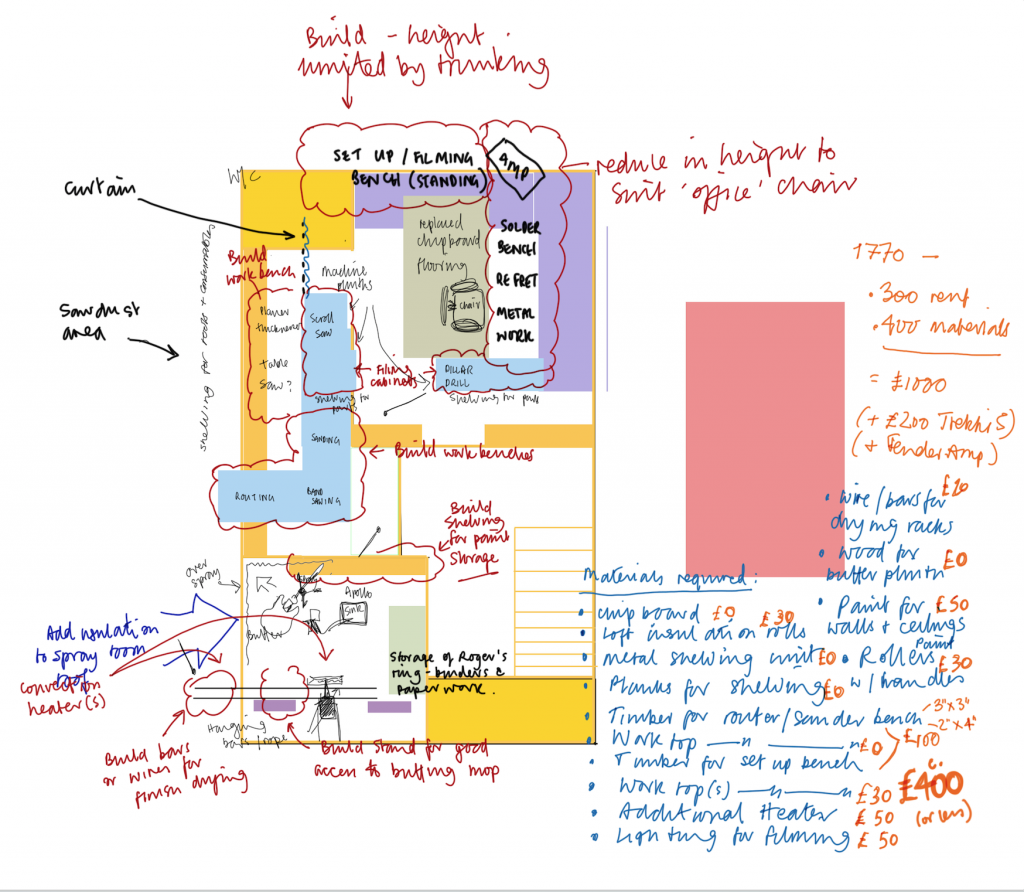 Build - height
limited by trunking
SET UP / FILMING
BENCH (STANDING)
AMP
reduce in height to
suit 'office' chair
W/C
Curtain
replaced
chipboard
flooring
SOLDER
BENCH
REFRET
METAL
WORK
chair
Build
workbench
machine
plinths
Sawdust
area
shelving for tools + consumables
Planer
thicknesser
table
saw?
Scroll
saw
Filing
cabinets
PILLAR
DRILL
shelving for parts
shelving for parts
SANDING
Build workbenches
ROUTING
BAND
SAWING
Build
shelving
for paint
storage
over
spray
Apollo
sink
Buffer
Add insulation
to spray room
roof
convection
heater(s)
Storage of Roger's
ring-binders &
paperwork.
Hanging
bars/rope
Build bars
or wires for
finish drying
Build stand for good
access to buffing mop
1770 —
• 300 rent
• 400 materials
= £1080
(+ £200 Trekkis)
(+ Fender Amp)
• wire/bars for £20
drying racks
• wood for £0
buffer plinth
• Paint for £50
walls + ceilings
• Paint Rollers £30
w/ handles
Materials required:
• chipboard £0
• Loft insulation rolls £30
• metal shelving unit £0
• Planks for shelving £0
• Timber for router/sander bench - 3"x3"
- 2"x4"
• Work top — " — " £0
£100
• Timber for set up bench
• Work top(s) — " — " £30
£400
(or less)
• Additional Heater £50
• Lighting for filming £50